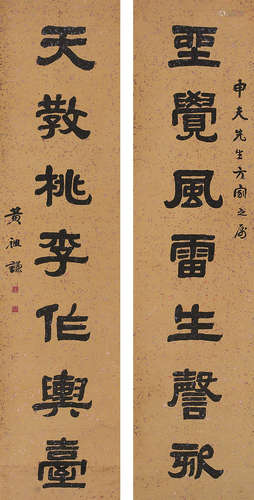 申夫先生方家之屬
坐覺風雷生謦欬
天敎桃李作輿臺
黃祖謙